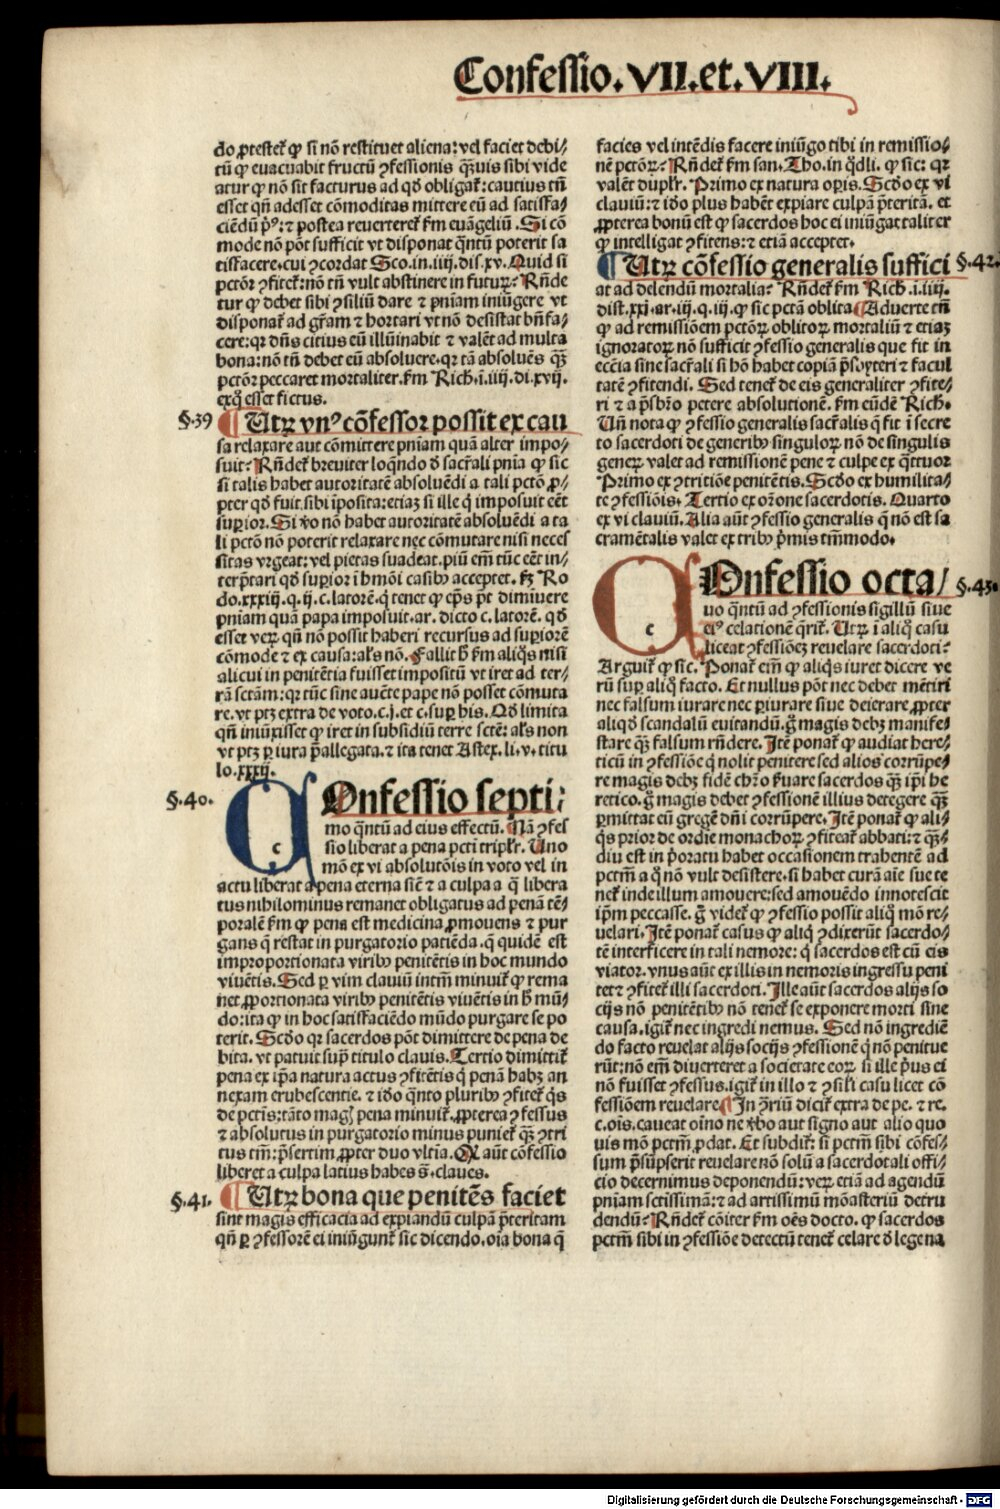 Confessio.VII.et.VIII.
do ꝓtestet᷑ ꝙ si nõ restituet aliena: vel faciet debi⸗
tũ ꝙ euacuabit fructũ ꝯfessionis qͣꝫuis sibi vide
atur ꝙ nõ sit facturus ad qd̓ obligat᷑: cautius tñ
esset qñ adesset cõmoditas mittere eũ ad satisfa⸗
ciẽdũ pꝰ: ⁊ postea reuerteret᷑ ẜm euãgeliũ. Si cõ
mode nõ põt sufficit vt disponat q̃ntũ poterit sa
tisfacere. cui ꝯcordat Sco. in. iiij. dis. xv. Quid si
pctõr ꝯfitet᷑: nõ tñ vult abstinere in futurꝝ? Rñde
tur ꝙ debet sibi ꝯsiliũ dare ⁊ pniam iniũgere vt
disponat᷑ ad gr̃am ⁊ hortari vt nõ desistat bñfa⸗
cere: qꝛ dñs citius eũ illũinabit ⁊ valẽt ad multa
bona: nõ tñ debet eũ absoluere. qꝛ tã absoluẽs qͣꝫ
pctõr peccaret mortaliter. ẜm Rich. i. iiij. di. xvij.
exq̃ esset fictus.
§.39 ¶ Utꝝ vnꝰ cõfessor possit ex cau
sa relaxare aut cõmittere pniam quã alter impo⸗
suit? Rñdet᷑ breuiter loq̃ndo d̓ sacr̃ali pnia ꝙ sic
si talis habet autoritatẽ absoluẽdi a tali pctõ ꝓ⸗
pter qd̓ fuit sibi ĩposita: etiaꝫ si ille q̇ imposuit eẽt
suꝑior. Si ṽo nõ habet autoritatẽ absoluẽdi a ta
li pctõ nõ poterit relaxare nec cõmutare nisi neces
sitas vrgeat: vel pietas suadeat. piũ em̃ tũc eẽt in⸗
terp̃tari qd̓ suꝑior ĩ hmõi casibꝰ acceptet. ẜꝫ Ro
do. xxxiij. q. ij. c. latorẽ. q̇ tenet ꝙ ep̃s p̃t dimiuere
pniam quã papa imposuit. ar. dicto c. latorẽ. qd̓
esset veꝝ qñ nõ possit haberi recursus ad suꝑiorẽ
cõmode ⁊ ex causa: al̃s nõ. Fallit h̓ ẜm aliq̃s nisi
alicui in penitẽtia fuisset impositũ vt iret ad ter⸗
rã sctãm: qꝛ tũc sine auc̃te pape nõ posset cõmuta
re. vt ptꝫ extra de voto. c. j. et c. suꝑ his. Qd̓ limita
qñ iniũxisset ꝙ iret in subsidiũ terre sctẽ: al̃s non
vt ptꝫ ꝑ iura p̃allegata. ⁊ ita tenet Astex. li. v. titu
lo. xxxij.
§.40. COnfessio septi⸗
mo q̃ntũ ad eius effectũ. Nã ꝯfes
sio liberat a pena pcti tripl̃r. Uno
mõ ex vi absolutõis in voto vel in
actu liberat a pena eterna sic̃ ⁊ a culpa a q̃ libera
tus nihilominus remanet obligatus ad penã tẽ⸗
poralẽ ẜm ꝙ pena est medicina ꝓmouens ⁊ pur
gans q̃ restat in purgatorio patiẽda. q̃ quidẽ est
improportionata viribꝰ penitẽtis in hoc mundo
viuẽtis. Sed ꝑ vim clauiũ intm̃ minuit᷑ ꝙ rema
net ꝓportionata viribꝰ penitẽtis viuẽtis in h̓ mũ⸗
do: ita ꝙ in hoc satisfaciẽdo mũdo purgare se po
terit. Scd̓o qꝛ sacerdos põt dimittere de pena de
bita. vt patuit sup̃ titulo clauis. Tertio dimittit᷑
pena ex ip̃a natura actus ꝯfitẽtis q̇ penã habꝫ an
nexam erubescentie. ⁊ iõo q̃nto pluribꝰ ꝯfitet᷑ q̃s
de pctĩs: tãto magꝭ pena minuit᷑. ꝓpterea ꝯfessus
⁊ absolutus in purgatorio minus puniet᷑ qͣꝫ ꝯtri
tus tm̃: p̃sertim ꝓpter duo vltĩa. Qũ aũt cõfessio
liberet a culpa latius habes s̃. claues.
§.41. ¶ Utꝝ bona que penitẽs faciet
sint magis efficacia ad expiandũ culpã p̃teritam
qñ ꝑ ꝯfessorẽ ei iniũgunt᷑ sic dicendo. oĩa bona q̃
facies vel intẽdis facere iniũgo tibi in remissio⸗
nẽ pctõꝝ? Rñdet᷑ ẜm san. Tho. in q̊dli. ꝙ sic: qꝛ
valẽt dupl̃r. Primo ex natura oꝑis. Scd̓o ex vi
clauiũ: ⁊ iõo plus habẽt expiare culpã p̃teritã. et
ꝓpterea bonũ est ꝙ sacerdos hoc ei iniũgat taliter
ꝙ intelligat ꝯfitens: ⁊ etiã acceptet.
¶ Utꝝ cõfessio generalis suffici §.42.
at ad delendũ mortalia? Rñdet᷑ ẜm Rich. i. iiij.
dist. xxj. ar. iij. q. iij. ꝙ sic pctã oblita. ¶ Aduerte tñ
ꝙ ad remissiõem pctõꝝ oblitoꝝ mortaliũ ⁊ etiaꝫ
ignoratoꝝ nõ sufficit ꝯfessio generalis que fit in
ecc̃ia sine sacr̃ali si hõ habet copiã p̃sbyteri ⁊ facul
tatẽ ꝯfitendi. Sed tenet᷑ de eis generaliter ꝯfite⸗
ri ⁊ a p̃sbr̃o petere absolutionẽ. ẜm eũdẽ Rich.
Uñ nota ꝙ ꝯfessio generalis sacr̃alis q̃ fit ĩ secre
to sacerdoti de generibꝰ singuloꝝ nõ de singulis
geneꝝ valet ad remissionẽ pene ⁊ culpe ex q̃ttuor
Primo ex ꝯtritiõe penitẽtis. Scd̓o ex humilita⸗
te ꝯfessiõis. Tertio ex or̃one sacerdotis. Quarto
ex vi clauiũ. Alia aũt ꝯfessio generalis q̃ nõ est sa
cramẽtalis valet ex tribꝰ p̃mis tm̃modo.
COnfessio octa⸗ §.43.
uo q̃ntũ ad ꝯfessionis sigillũ siue
eiꝰ celationẽ q̃rit᷑. Utꝝ ĩ aliq̃ casu
liceat ꝯfessiõeꝫ reuelare sacerdoti?
Arguit᷑ ꝙ sic. Ponat᷑ em̃ ꝙ aliq̃s iuret dicere ve
rũ suꝑ aliq̃ facto. Et nullus põt nec debet mẽtiri
nec falsum iurare nec ꝑiurare siue deierare ꝓpter
aliqd̓ scandalũ euitandũ. g̊ magis debꝫ manife⸗
stare qͣꝫ falsum rñdere. Itẽ ponat᷑ ꝙ audiat here⸗
ticũ in ꝯfessiõe q̇ nolit penitere sed alios corrũpe⸗
re magis debꝫ fidẽ chr̃o ẜuare sacerdos qͣꝫ ip̃i he
retico. g̊ magis debet ꝯfessionẽ illius detegere qͣꝫ
ꝑmittat eũ gregẽ dñi corrũpere. Itẽ ponat᷑ ꝙ ali⸗
q̃s prior de ordĩe monachoꝝ ꝯfiteat᷑ abbati: ⁊ qͣꝫ⸗
diu est in p̃oratu habet occasionem trahentẽ ad
pctm̃ a q̊ nõ vult desistere. si habet curã aĩe sue te
net᷑ inde illum amouere: sed amouẽdo innotescit
ip̃m peccasse. g̊ videt᷑ ꝙ ꝯfessio possit aliq̊ mõ re⸗
uelari. Itẽ ponat᷑ casus ꝙ aliq̇ ꝯdixerũt sacerdo⸗
tẽ interficere in tali nemore: q̇ sacerdos est cũ eis
viator. vnus aũt ex illis in nemoris ingressu peni
tet ⁊ ꝯfitet᷑ illi sacerdoti. Ille aũt sacerdos alijs so
cijs nõ penitẽtibꝰ nõ tenet᷑ se exponere morti sine
causa. igit᷑ nec ingredi nemus. Sed nõ ingrediẽ
do facto reuelat alijs socijs ꝯfessionẽ q̇ nõ penitue
rũt: nõ em̃ diuerteret a societate eoꝝ si ille p̃us ei
nõ fuisset ꝯfessus. igit᷑ in illo ⁊ ꝯsil̃i casu licet cõ
fessiõem reuelare. ¶ In ꝯ̃riũ dicit᷑ extra de pe. ⁊ re.
c. oĩs. caueat oĩno ne ṽbo aut signo aut alio quo
uis mõ pctm̃ ꝓdat. Et subdit᷑: si pctm̃ sibi cõfes⸗
sum p̃sũpserit reuelare nõ solũ a sacerdotali offi⸗
cio decernimus deponendũ: veꝝ etiã ad agendũ
pniam sctissimã: ⁊ ad artissimũ mõasteriũ detru
dendũ? Rñdet᷑ cõiter ẜm oẽs docto. ꝙ sacerdos
pctm̃ sibi in ꝯfessiõe detectũ tenet᷑ celare d̓ lege na
Digitalisierung gefördert durch die Deutsche Forschungsgemeinschaft - DFG